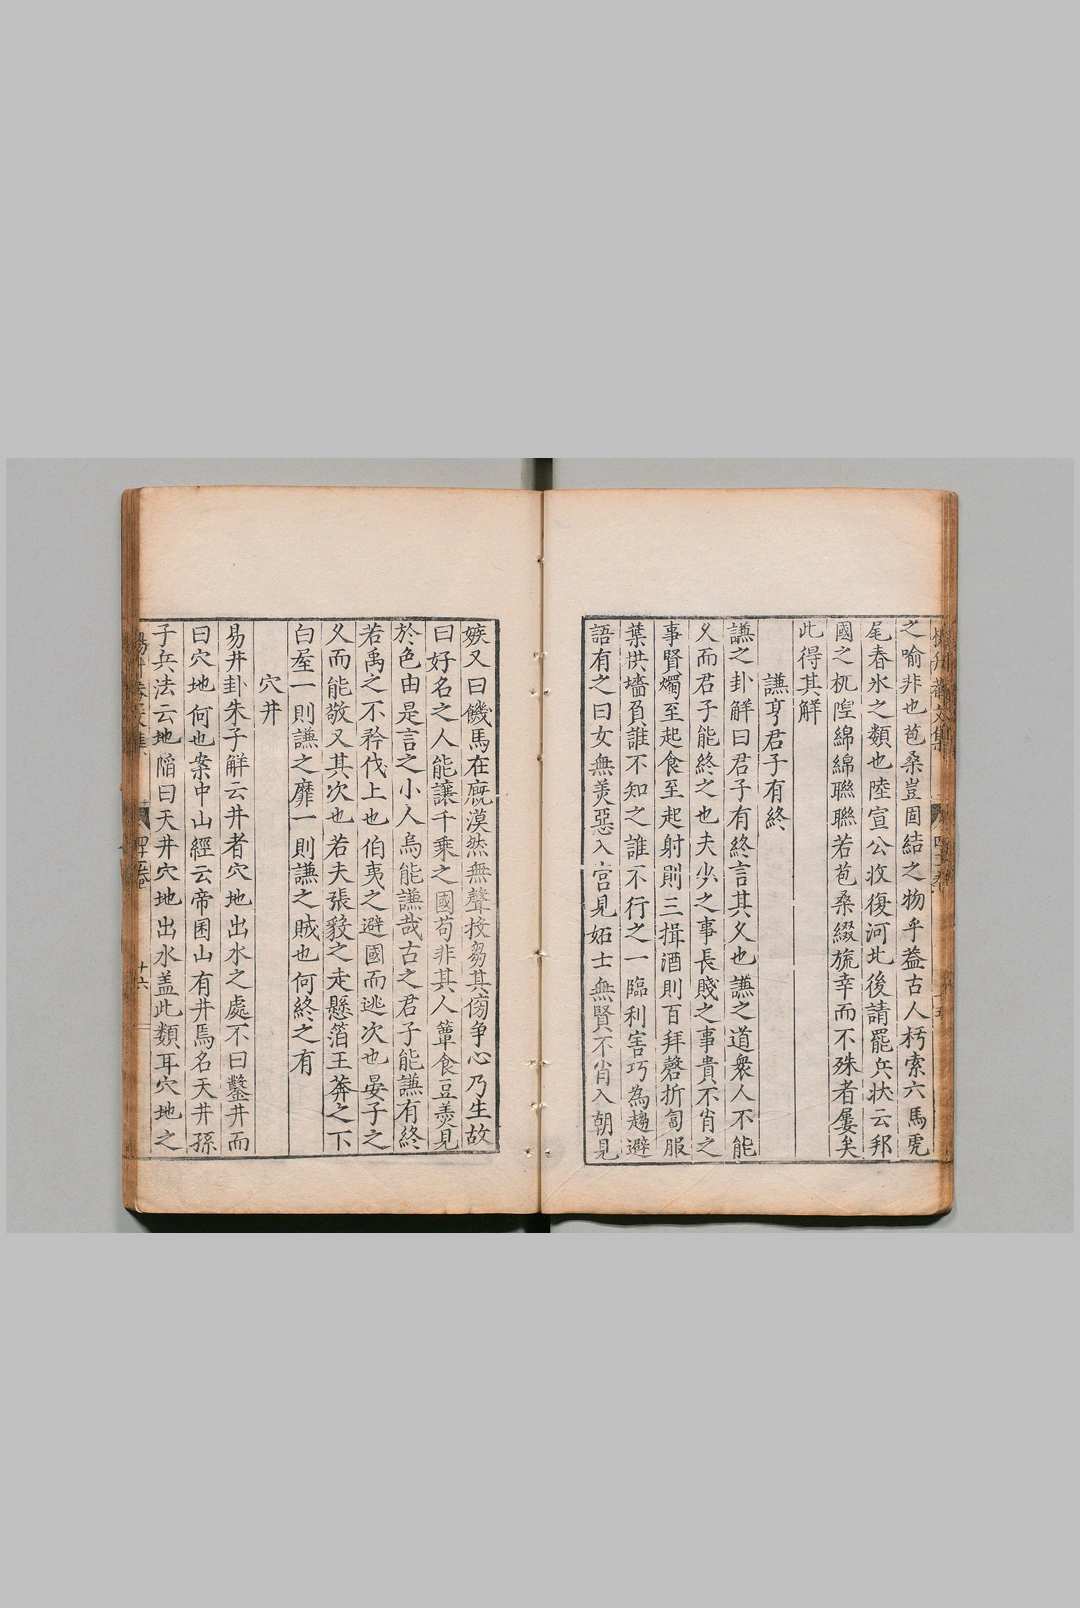 之喻非也苞桑豈固結之物乎葢古人朽索六馬虎
尾春氷之類也陸宣公收復河北後請罷兵狀云邦
國之杌隉綿綿聯聯若苞桑綴旒幸而不殊者屢矣
此得其解
謙亨君子有終
謙之卦解曰君子有終言其久也謙之道衆人不能
久而君子能終之也夫少之事長賤之事貴不肖之
事賢燭至起食至起射則三揖酒則百拜磬折匐服
葉拱墻負誰不知之誰不行之一臨利害巧為趨避
語有之曰女無美惡入宮見妬士無賢不肖入朝見
嫉又曰饑馬在廐漠然無聲投芻其傍争心乃生故
曰好名之人能讓千乘之國苟非其人簞食豆羹見
於色由是言之小人烏能謙哉古之君子能謙有終
若禹之不矜伐上也伯夷之避國而逃次也晏子之
久而能敬又其次也若夫張毅之走懸箔王莽之下
白屋一則謙之靡一則謙之賊也何終之有
穴井
易井卦朱子解云井者穴地出水之處不曰鑿井而
曰穴地何也案中山經云帝囷山有井焉名天井孫
子兵法云地陷曰天井穴地出水盖此類耳穴地之
四十五卷
十六